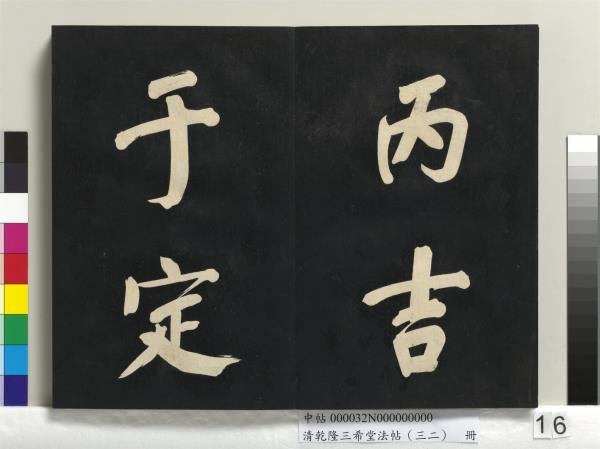 丙吉
于定
中帖 000032N000000000
清乾隆三希堂法帖（三二） 冊
16